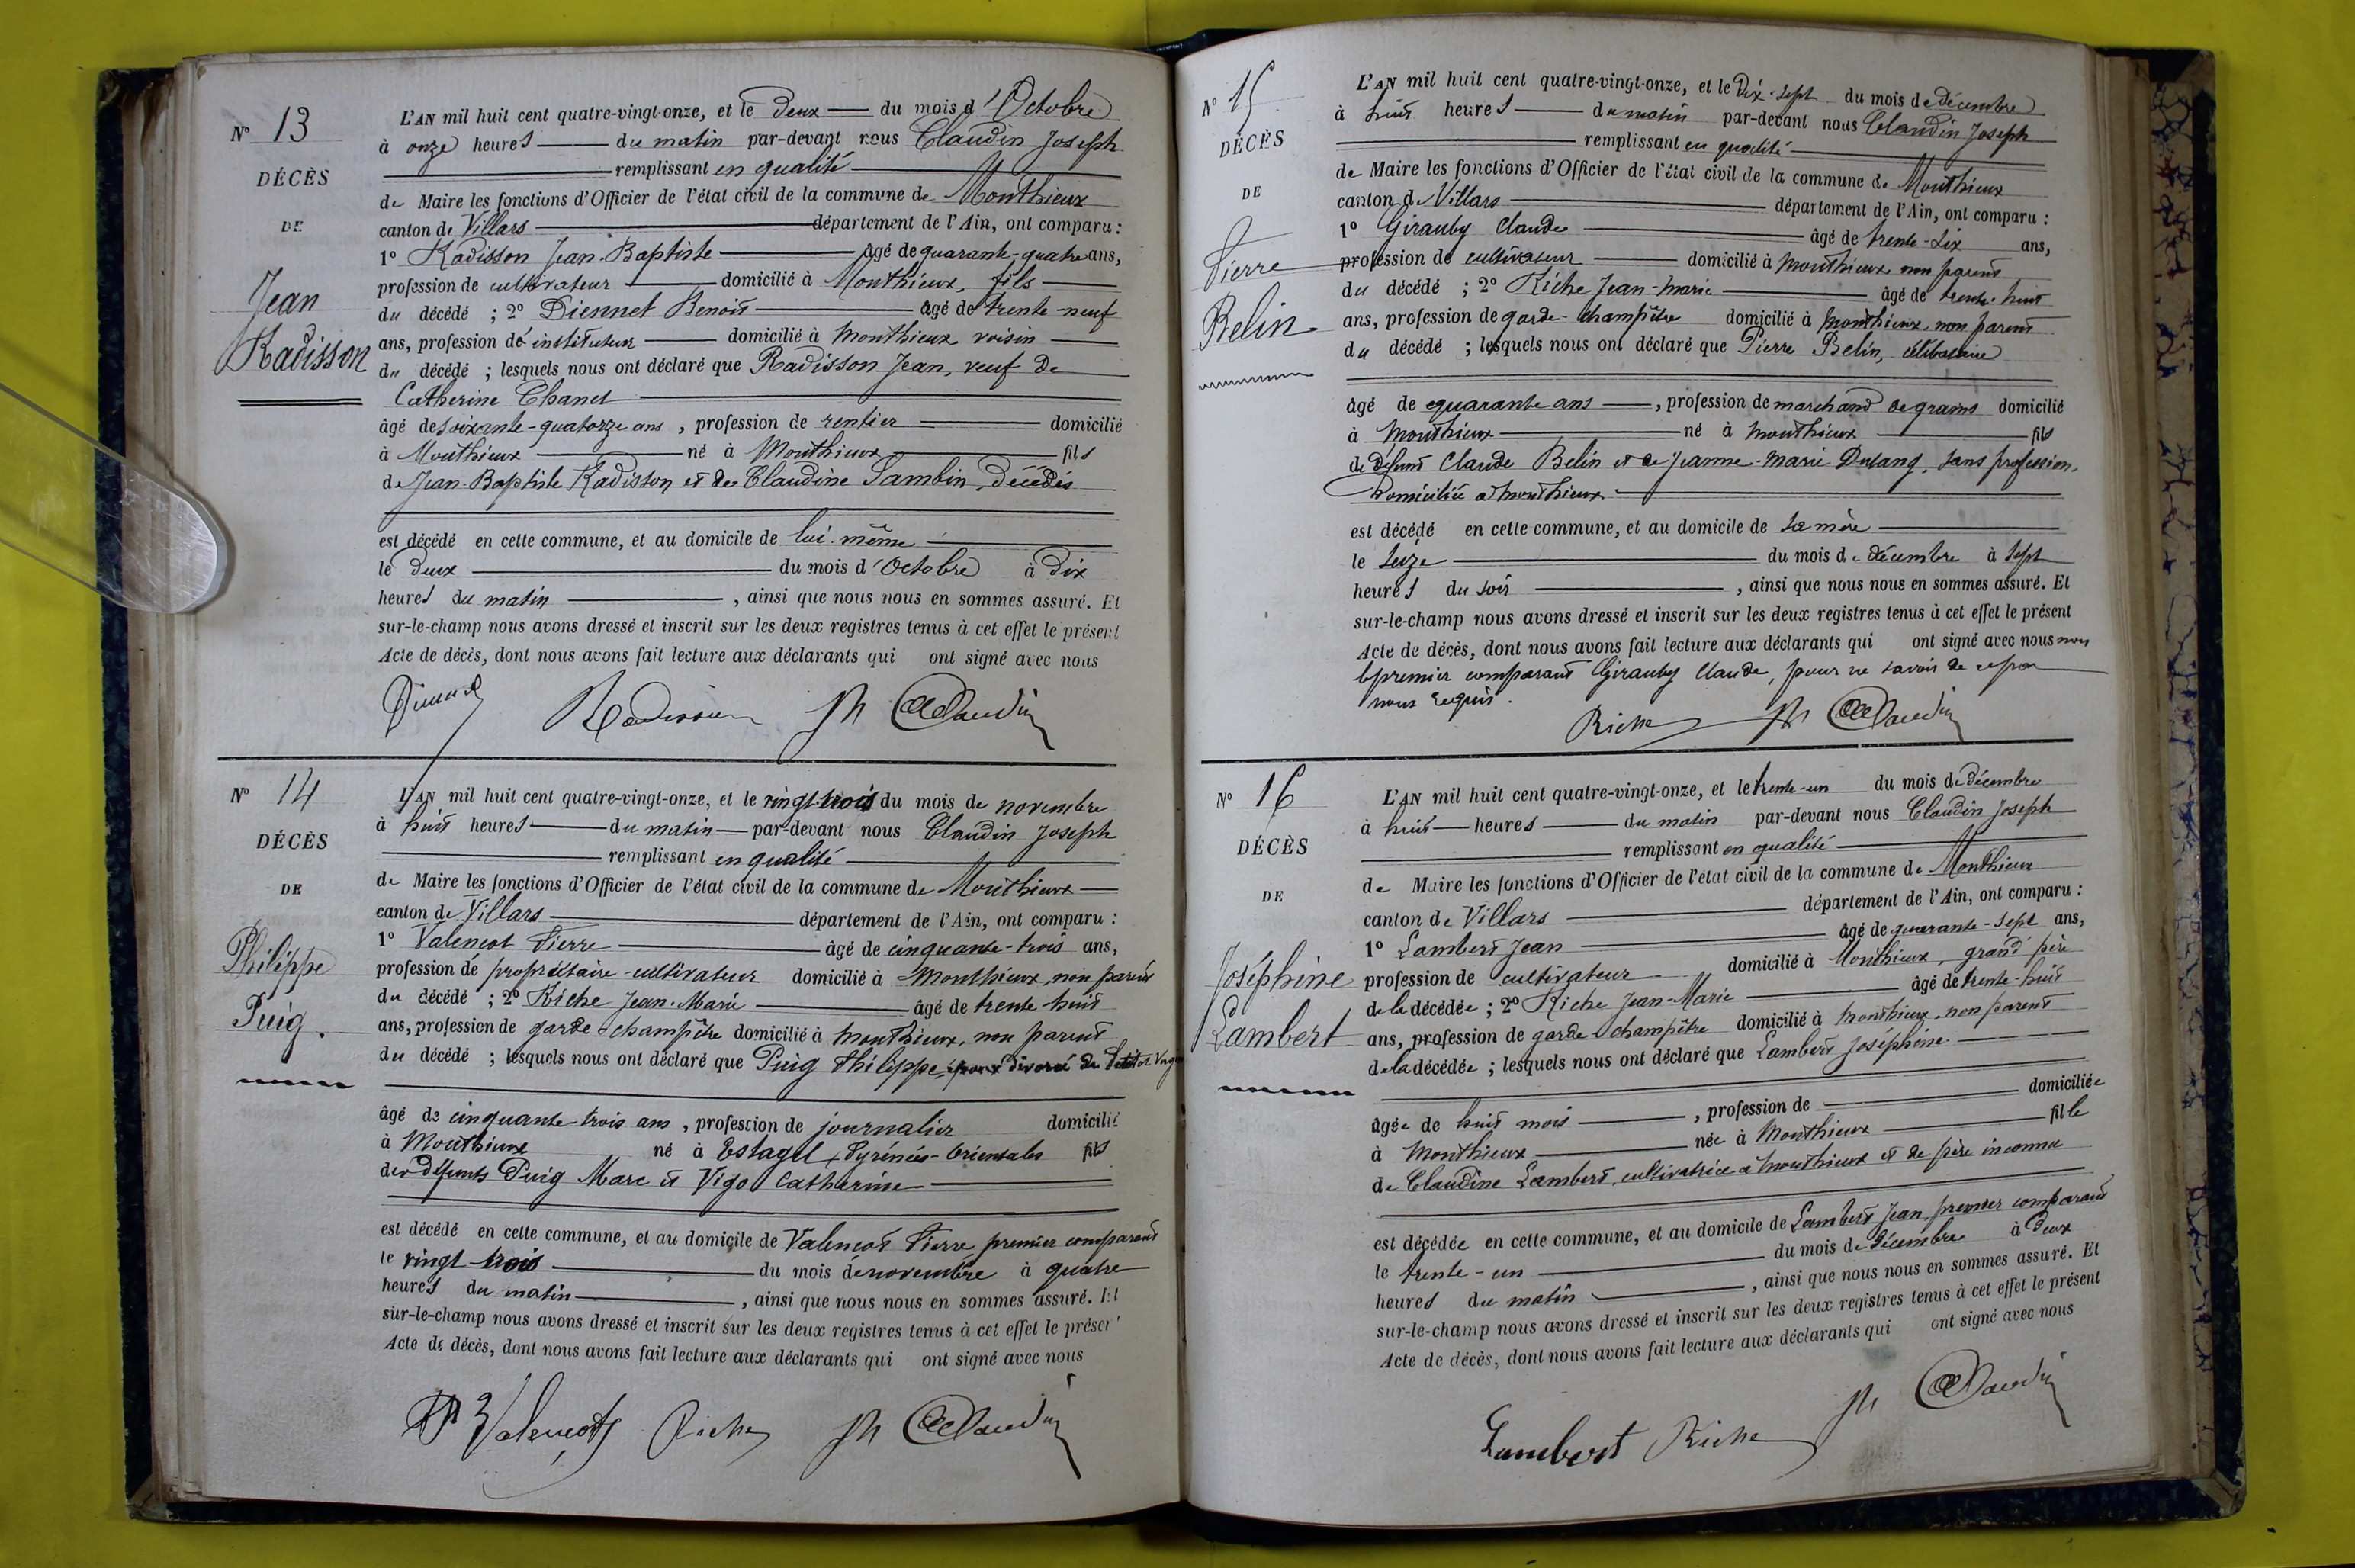 N° 13
DÉCÈS
DE
Jean
Radisson
L'AN mil huit cent quatre-vingt-onze, et le Deux du mois d'Octobre
à onze heures du matin par-devant nous Claudin Joseph
remplissant en qualité
de Maire les fonctions d'Officier de l'état civil de la commune de Monthieux
canton de Villars département de l'Ain, ont comparu :
1° Radisson Jean-Baptiste âgé de quarante-quatre ans,
profession de cultivateur domicilié à Monthieux, fils
du décédé ; 2° Diennet Benoit âgé de trente-neuf
ans, profession de instituteur domicilié à Monthieux voisin
du décédé ; lesquels nous ont déclaré que Radisson Jean, veuf de
Catherine Chanel
âgé de soixante-quatorze ans, profession de rentier domicilié
à Monthieux né à Monthieux fils
de Jean-Baptiste Radisson et de Claudine Sambin, décédés
est décédé en cette commune, et au domicile de lui-même
le Deux du mois d'Octobre à Dix
heures du matin, ainsi que nous nous en sommes assuré. Et
sur-le-champ nous avons dressé et inscrit sur les deux registres tenus à cet effet le présent
Acte de décès, dont nous avons fait lecture aux déclarants qui ont signé avec nous
Radisson Claudin
N° 14
DÉCÈS
DE
Philippe
Puig.
L'AN mil huit cent quatre-vingt-onze, et le vingt-trois du mois de novembre
à huit heures du matin par-devant nous Claudin Joseph
remplissant en qualité
de Maire les fonctions d'Officier de l'état civil de la commune de Monthieux
canton de Villars département de l'Ain, ont comparu :
1° Valençot Pierre âgé de cinquante-trois ans,
profession de propriétaire-cultivateur domicilié à Monthieux, non parent
du décédé ; 2° Riche Jean-Marie âgé de trente-huit
ans, profession de garde-champêtre domicilié à Monthieux, non parent
du décédé ; lesquels nous ont déclaré que Puig Philippe, divorcé de
âgé de cinquante-trois ans, profession de journalier domicilié
à Monthieux né à Estagel, Pyrénées-Orientales fils
des défunts Puig Marc et Vigo Catherine
est décédé en cette commune, et au domicile de Valençot Pierre, premier comparant
le vingt-trois du mois de novembre à quatre
heures du matin, ainsi que nous nous en sommes assuré. Et
sur-le-champ nous avons dressé et inscrit sur les deux registres tenus à cet effet le présent
Acte de décès, dont nous avons fait lecture aux déclarants qui ont signé avec nous
Valençot Riche Claudin
N° 15
DÉCÈS
DE
Pierre
Belin
L'AN mil huit cent quatre-vingt-onze, et le Dix-sept du mois de décembre
à huit heures du matin par-devant nous Claudin Joseph
remplissant en qualité
de Maire les fonctions d'Officier de l'état civil de la commune de Monthieux
canton de Villars département de l'Ain, ont comparu :
1° Girauby Claude âgé de trente-six ans,
profession de cultivateur domicilié à Monthieux non parent
du décédé ; 2° Riche Jean-Marie âgé de trente-huit
ans, profession de garde-champêtre domicilié à Monthieux, non parent
du décédé ; lesquels nous ont déclaré que Pierre Belin, célibataire
âgé de quarante ans, profession de marchand de grains domicilié
à Monthieux né à Monthieux fils
de défunt Claude Belin et de Jeanne-Marie Dusang, sans profession,
domiciliée à Monthieux
est décédé en cette commune, et au domicile de sa mère
le seize du mois de décembre à sept
heures du soir, ainsi que nous nous en sommes assuré. Et
sur-le-champ nous avons dressé et inscrit sur les deux registres tenus à cet effet le présent
Acte de décès, dont nous avons fait lecture aux déclarants qui ont signé avec nous non
le premier comparant Girauby Claude, pour ne savoir de ce par
nous requis.
Riche Claudin
N° 16
DÉCÈS
DE
Joséphine
Lambert
L'AN mil huit cent quatre-vingt-onze, et le trente-un du mois de décembre
à huit heures du matin par-devant nous Claudin Joseph
remplissant en qualité
de Maire les fonctions d'Officier de l'état civil de la commune de Monthieux
canton de Villars département de l'Ain, ont comparu :
1° Lambert Jean âgé de quarante-sept ans,
profession de cultivateur domicilié à Monthieux, grand père
de la décédée ; 2° Riche Jean-Marie âgé de trente-huit
ans, profession de garde-champêtre domicilié à Monthieux, non parent
de la décédée ; lesquels nous ont déclaré que Lambert Joséphine
âgée de huit mois, profession de domiciliée
à Monthieux née à Monthieux fille
de Claudine Lambert, cultivatrice à Monthieux et de père inconnu
est décédée en cette commune, et au domicile de Lambert Jean premier comparant
le trente-un du mois de décembre à Deux
heures du matin, ainsi que nous nous en sommes assuré. Et
sur-le-champ nous avons dressé et inscrit sur les deux registres tenus à cet effet le présent
Acte de décès, dont nous avons fait lecture aux déclarants qui ont signé avec nous
Lambert Riche Claudin